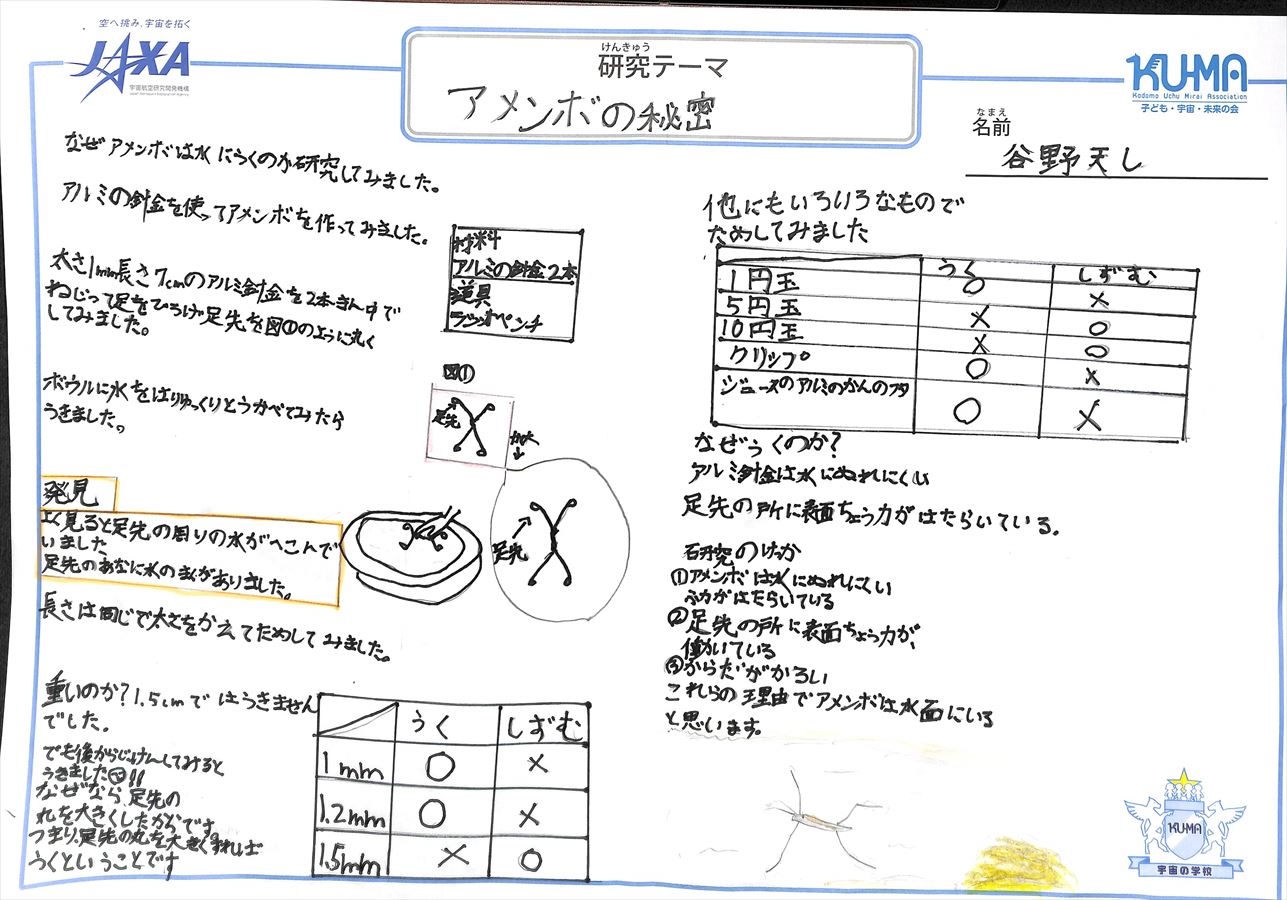 空へ挑み、宇宙を拓く
JAXA
宇宙航空研究開発機構
Japan Aerospace Exploration Agency
けんきゅう
研究テーマ
アメンボの秘密
KU-MA
Kodomo Uchu Mirai Association
子ども・宇宙・未来の会
なまえ
名前
谷野天し
なぜアメンボは水にうくのか研究してみました。
アルミの針金を使ってアメンボを作ってみました。
太さ1mm長さ7cmのアルミ針金を2本まん中で
ねじって足をひろげ足先を図①のように丸く
してみました。
材料
アルミの針金2本
道具
ラジオペンチ
ボウルに水をはりゆっくりとうかべてみたら
うきました。
図①
足先
かく大
足先
発見
よく見ると足先の周りの水がへこんで
いました
足先のあなに水のまくがありました。
長さは同じで太さをかえてためしてみました。
重いのか?1.5cmではうきません
でした。
でも後からじっけんしてみると
うきました!!
なぜなら足先の
丸を大きくしたからです。
つまり、足先の丸を大きくすれば
うくということです
うく しずむ
1mm ○ ×
1.2mm ○ ×
1.5mm × ○
他にもいろいろなもので
ためしてみました
うく しずむ
1円玉 ○ ×
5円玉 × ○
10円玉 × ○
クリップ ○ ×
ジュースのアルミのかんのフタ ○ ×
なぜうくのか?
アルミ針金は水にぬれにくい
足先の所に表面ちょう力がはたらいている。
研究のけっか
①アメンボは水にぬれにくい
ふ力がはたらいている
②足先の所に表面ちょう力が、
働いている
③からだがかるい
これらの理由でアメンボは水面にいる
と思います。
KU-MA
宇宙の学校